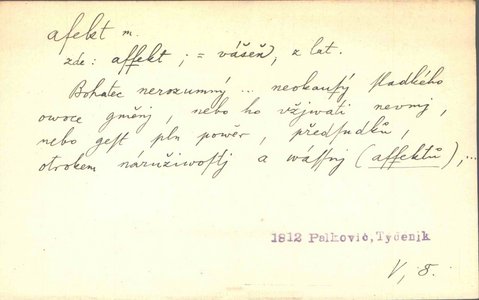 afekt m.
zde: affekt ; = vášeň, z lat.
Bohatec nerozumný ... neokausý sladkého
owoce gměnj, nebo ho vžjwati nevmj,
nebo gest pln power, předsudků,
otrokem náružiwostj a wássnj (affektů), ...
1812 Palkovič, Tyčenik
V, 8.